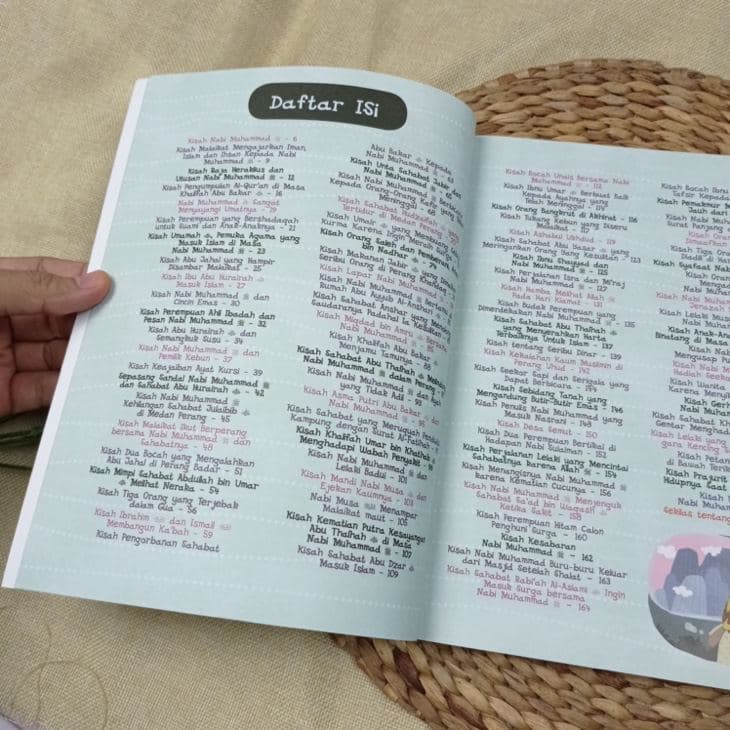 Daftar ISi
Kisah Nabi Muhammad ﷺ - 6
Kisah Malaikat Mengajarkan Iman,
Islam dan Ihsan Kepada Nabi
Muhammad ﷺ - 9
Kisah Raja Heraklius dan
Utusan Nabi Muhammad ﷺ - 12
Kisah Pengumpulan Al-Qur'an di Masa
Khalifah Abu Bakar - 16
Nabi Muhammad ﷺ Sangat
Menyayangi Umatnya - 19
Kisah Perempuan yang Bershadaqah
untuk Suami dan Anak-Anaknya - 21
Kisah Umamah, Pemuka Agama yang
Masuk Islam di Masa
Nabi Muhammad ﷺ - 23
Kisah Abu Jahal yang Hampir
Disambar Malaikat - 25
Kisah Ibu Abu Hurairah
Masuk Islam - 27
Kisah Nabi Muhammad ﷺ dan
Cincin Emas - 30
Kisah Perempuan Ahli Ibadah dan
Pesan Nabi Muhammad ﷺ - 32
Kisah Abu Hurairah dan
Semangkuk Susu - 34
Kisah Nabi Muhammad ﷺ dan
Pemilik Kebun - 37
Kisah Keajaiban Ayat Kursi - 39
Sepasang Sandal Nabi Muhammad ﷺ
dan Sahabat Abu Hurairah - 42
Kisah Nabi Muhammad ﷺ
Kehilangan Sahabat Julaibib
di Medan Perang - 45
Kisah Malaikat Ikut Berperang
bersama Nabi Muhammad ﷺ dan
Sahabatnya - 48
Kisah Dua Bocah yang Mengalahkan
Abu Jahal di Perang Badar - 51
Kisah Mimpi Sahabat Abdullah bin Umar
Melihat Neraka - 54
Kisah Tiga Orang yang Terjebak
dalam Gua - 56
Kisah Ibrahim dan Ismail
Membangun Ka'bah - 59
Kisah Pengorbanan Sahabat
Abu Bakar Kepada
Nabi Muhammad ﷺ
Kisah Unta Sahabat Jabir dan
Nabi Muhammad ﷺ
Kisah Nabi Muhammad ﷺ
Kepada Orang-Orang yang
Meninggal - 68
Kisah Sahabat Hudzaifah yang
Tertidur di Medan Perang
Kisah Umar yang Membuang
Kurma Karena Ingin Meraih
Kisah Orang Saleh dan
bin Nadhar
Kisah Makanan Jabir yang
Seribu Orang di Perang Khandaq
Kisah Lapar Nabi Muhammad ﷺ
Kisah Nabi Muhammad ﷺ
Rumah Abu Ayyub Al-Anshari
Kisah Sahabat Anshar yang
Saudaranya Padahal Ia
Kisah Miqdad bin Amru
Nabi Muhammad ﷺ
Kisah Khalifah Abu Bakar
Menjamu Tamunya
Kisah Sahabat Abu Thalhah
Nabi Muhammad ﷺ dalam Perang
Kisah Nabi Muhammad ﷺ dan
yang Tidak Adil - 93
Kisah Asma Putri Abu Bakar dan
Nabi Muhammad ﷺ - 95
Kisah Sahabat yang Meruqyah
Kampung dengan Surat Al-Fatihah
Kisah Khalifah Umar bin Khathab
Menghadapi Wabah Penyakit
Kisah Nabi Muhammad ﷺ dan
Lelaki Badui - 101
Kisah Mandi Nabi Musa dan
Ejekan Kaumnya - 103
Nabi Musa Menampar
Malaikat maut - 105
Kisah Kematian Putra Kesayangan
Abu Thalhah di Masa
Nabi Muhammad ﷺ - 107
Kisah Sahabat Abu Dzar
Masuk Islam - 109
Kisah Bocah Unais bersama Nabi
Muhammad ﷺ - 112
Kisah Ibnu Umar Berbuat Baik
Kepada Ayahnya yang
Telah Meninggal
Kisah Orang Bangkrut di Akhirat - 116
Kisah Tukang Kebun yang Diseru
Malaikat
Kisah Ashabul Ukhdud - 119
Kisah Sahabat Abu Bakar yang
Meringankan Orang yang Kesulitan - 123
Kisah Islamnya
Nabi Muhammad ﷺ - 125
Kisah Perjalanan Isra dan Mi'raj
Nabi Muhammad ﷺ
Kisah Hamba Melihat Allah
Pada Hari Kiamat - 131
Kisah Budak Perempuan yang
Dimerdekakan Nabi Muhammad ﷺ - 135
Kisah Sahabat Abu Thalhah
yang Menyerahkan Harta
Terbaiknya Untuk Islam - 137
Kisah tentang Seribu Dinar - 139
Kisah Kekalahan Kaum Muslimin di
Perang Uhud - 142
Kisah Seekor Sapi dan Serigala yang
Dapat Berbicara - 144
Kisah Sebidang Tanah yang
Mengandung Butir-Butir Emas - 146
Kisah Penulis Nabi Muhammad yang
Masuk Nasrani - 148
Kisah Desa Semut - 150
Kisah Dua Perempuan Bertikai di
Hadapan Nabi Sulaiman - 152
Kisah Perjalanan Lelaki yang Mencintai
Sahabatnya karena Allah - 154
Kisah Menangisnya Nabi Muhammad ﷺ
karena Kematian Cucunya - 156
Kisah Nabi Muhammad ﷺ Menjenguk
Sahabat Sa'ad bin Waqash
Ketika Sakit - 158
Kisah Perempuan Hitam Calon
Penghuni Surga - 160
Kisah Kesabaran
Nabi Muhammad ﷺ - 162
Kisah Nabi Muhammad Buru-buru Keluar
dari Masjid Setelah Shalat - 163
Kisah Sahabat Rabi'ah Al-Aslami Ingin
Masuk Surga bersama
Nabi Muhammad ﷺ - 164
Kisah Bocah Ibnu
Kisah Pemakmur
Jauh dari
Kisah Nabi Muham
Surat Panjang
Kisah Orang
Dimaafkan
Kisah Tiga Or
Diadili di
Kisah Syafaat Nabi
Kisah Orang
Mengad
Kisah Nabi Muham
Kisah Lelaki Mas
Nabi Muham
Kisah Anak-Anak
Binatang di Masa
Kisah Nabi Muham
Mengusap
Kisah Nabi Muham
Kisah Wanita
Karena Menyik
Kisah Geri
Nabi Muha
Kisah Sahabat
Gentar Menghad
Kisah Lelaki yang
gara Kencing
Kisah Petani
di Bawah Terik
Kisah Prajurit
Hidupnya Saat
Kisah
Nabi Muham
Sekilas tentang